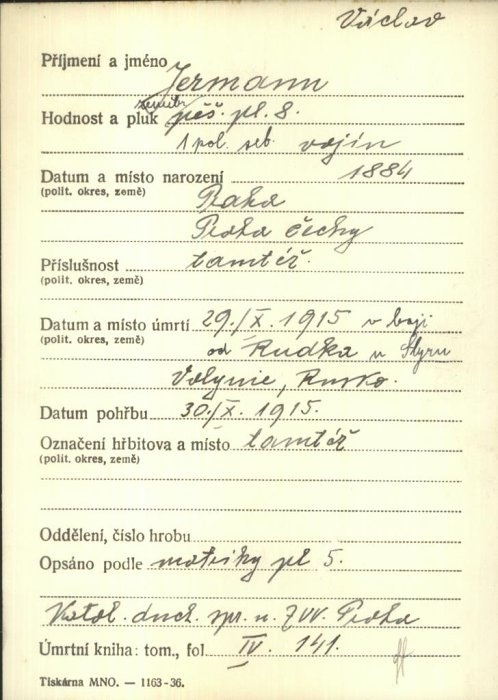 Václav
Příjmení a jméno Jermann
zeměbr.
Hodnost a pluk pěš. pl. 8.
1 pol. set. vojín
Datum a místo narození 1884
(polit. okres, země) Praha
Praha Čechy
Příslušnost tamtéž.
(polit. okres, země)
Datum a místo úmrtí 29./X. 1915 v boji
(polit. okres, země) od Rudka u Styru
Volynie, Rusko.
Datum pohřbu 30./X. 1915.
Označení hřbitova a místo tamtéž
(polit. okres, země)
Oddělení, číslo hrobu
Opsáno podle matriky pl 5.
Katol. duch. spr. u ZVV. Praha
Úmrtní kniha: tom., fol IV. 141.
Tiskárna MNO. — 1163-36.